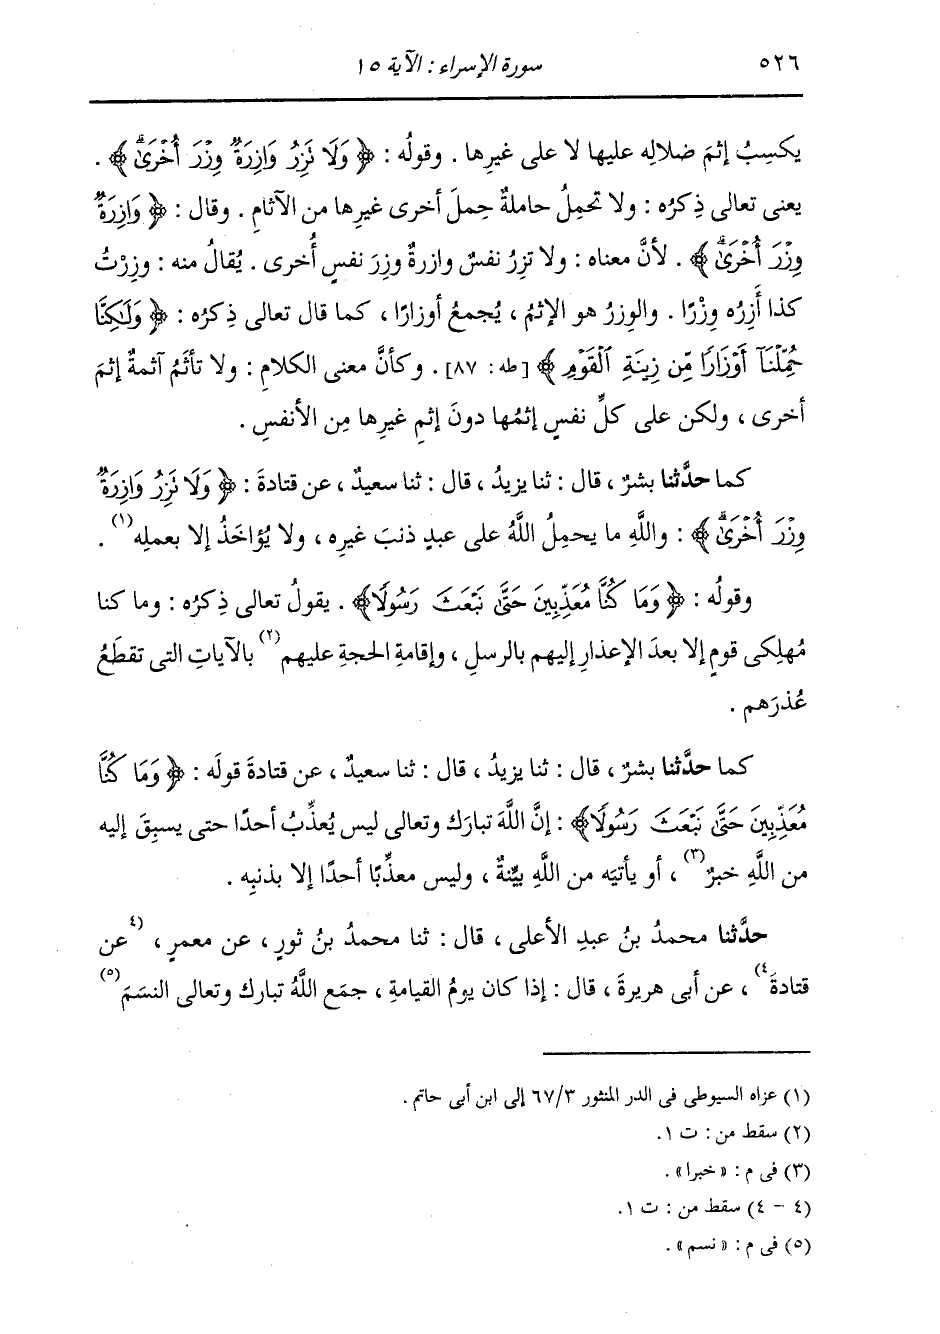 ٥٢٦ سورة الإسراء : الآية ١٥
يكسِبُ إثمَ ضلالِه عليها لا على غيرِها . وقولُه : ﴿ وَلَا نَزِرُ وَازِرَةٌ وِزْرَ أُخْرَىٰ ﴾ .
يعنى تعالى ذِكرُه : ولا تحمِلُ حاملةٌ حِملَ أخرى غيرِها من الآثامِ . وقال : ﴿ وَازِرَةٌ
وِزْرَ أُخْرَىٰ ﴾ . لأنَّ معناه : ولا تزِرُ نفسٌ وازرةٌ وزرَ نفسٍ أُخرى . يُقالُ منه : وزِرْتُ
كذا أَزِرُه وِزْرًا . والوِزرُ هو الإثمُ ، يُجمعُ أوزارًا ، كما قال تعالى ذِكرُه : ﴿ وَلَٰكِنَّا
حُمِّلْنَآ أَوْزَارًا مِّن زِينَةِ ٱلْقَوْمِ ﴾ [ طه : ٨٧] . وكأنَّ معنى الكلامِ : ولا تأثَمُ آثمةٌ إثمَ
أخرى ، ولكن على كلِّ نفسٍ إثمُها دونَ إثمِ غيرِها مِن الأنفسِ .
كما حدَّثنا بشرٌ ، قال : ثنا يزيدُ ، قال : ثنا سعيدٌ ، عن قتادةَ : ﴿ وَلَا نَزِرُ وَازِرَةٌ
وِزْرَ أُخْرَىٰ ﴾ : واللَّهِ ما يحمِلُ اللَّهُ على عبدٍ ذنبَ غيرِه ، ولا يُؤاخَذُ إلا بعملِه(١) .
وقولُه : ﴿ وَمَا كُنَّا مُعَذِّبِينَ حَتَّىٰ نَبْعَثَ رَسُولًا ﴾ . يقولُ تعالى ذِكرُه : وما كنا
مُهلِكى قومٍ إلا بعدَ الإعذارِ إليهم بالرسلِ ، وإقامةِ الحجةِ عليهم(٢) بالآياتِ التى تقطَعُ
عُذرَهم .
كما حدَّثنا بشرٌ ، قال : ثنا يزيدُ ، قال : ثنا سعيدٌ ، عن قتادةَ قولَه : ﴿ وَمَا كُنَّا
مُعَذِّبِينَ حَتَّىٰ نَبْعَثَ رَسُولًا ﴾ : إنَّ اللَّهَ تبارَك وتعالى ليس يُعذِّبُ أحدًا حتى يسبِقَ إليه
من اللَّهِ خبرٌ(٣) ، أو يأتيَه من اللَّهِ بيِّنةٌ ، وليس معذِّبًا أحدًا إلا بذنبِه .
حدَّثنا محمدُ بنُ عبدِ الأعلى ، قال : ثنا محمدُ بنُ ثورٍ ، عن معمرٍ ، (٤عن
قتادةَ٤) ، عن أبى هريرةَ ، قال : إذا كان يومُ القيامةِ ، جمَع اللَّهُ تبارك وتعالى النسَمَ(٥)
(١) عزاه السيوطى فى الدر المنثور ٦٧/٣ إلى ابن أبى حاتم .
(٢) سقط من : ت ١.
(٣) فى م : « خبرا » .
(٤ – ٤) سقط من : ت ١.
(٥) فى م : « نسم » .